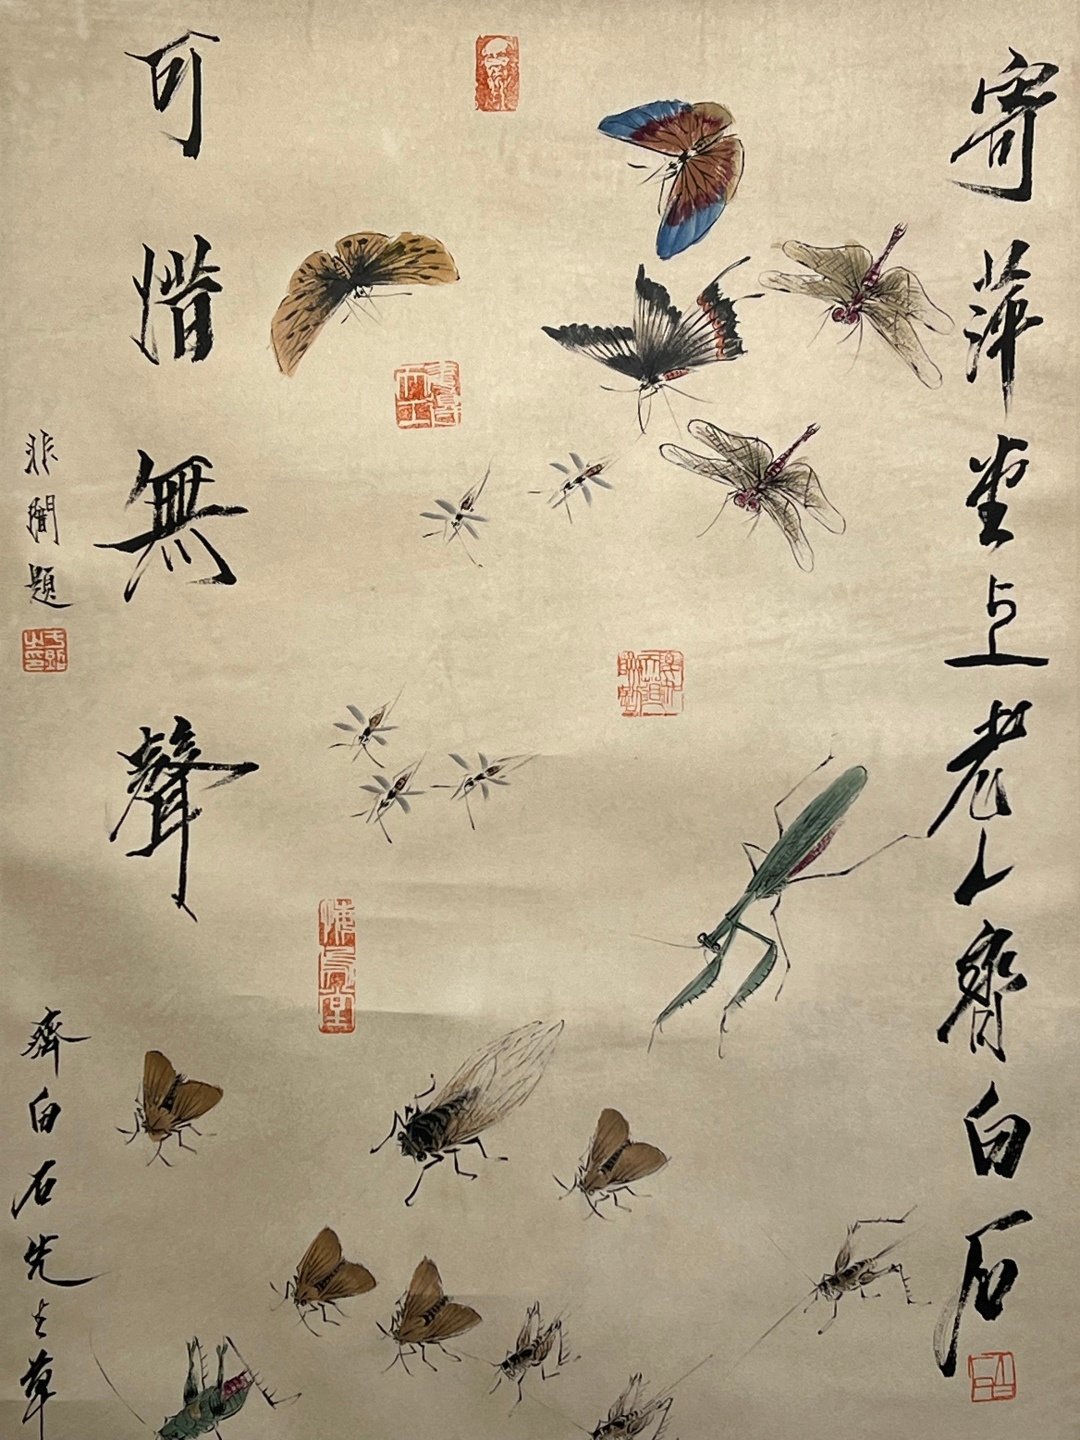 寄萍堂上老人齊白石
可惜無聲
非闇題
齊白石先生草